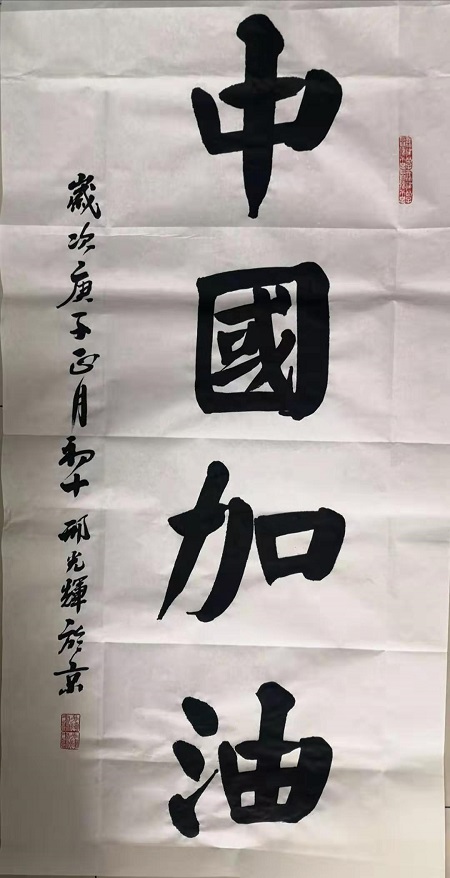 中國加油
歲次庚子正月初十邢光輝於京